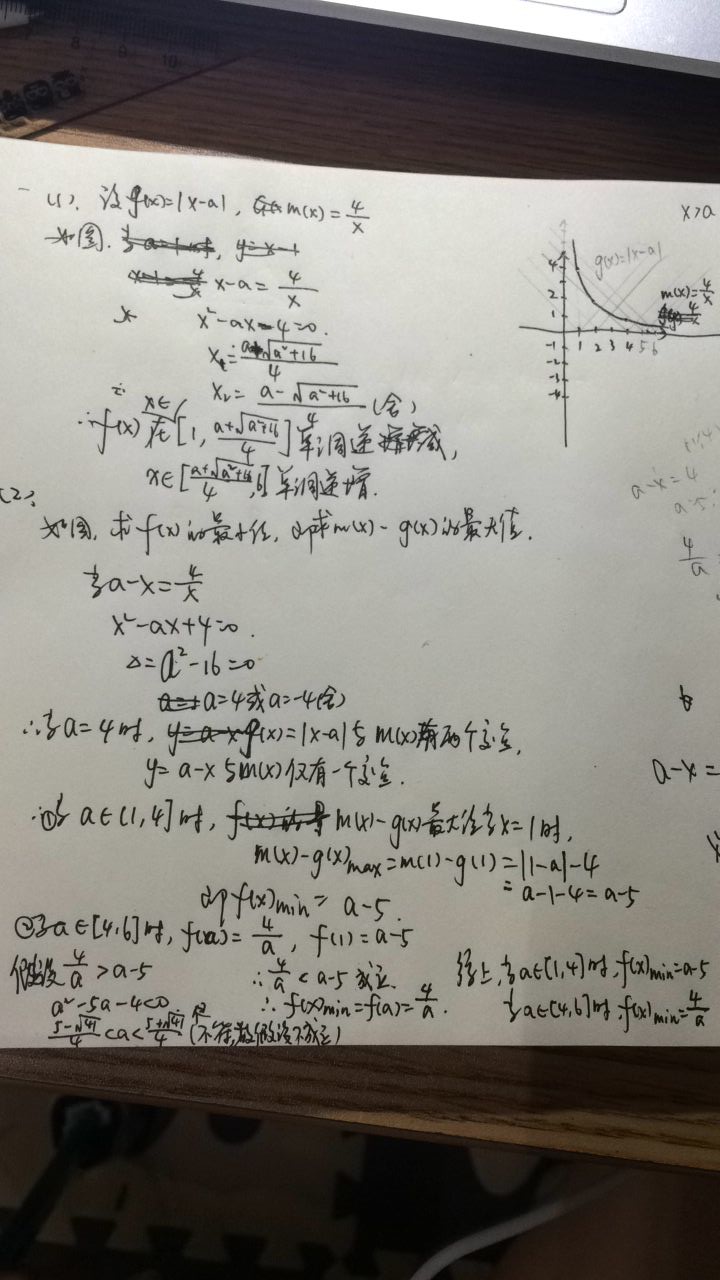 (1). 设g(x)=|x-a|, m(x)=4/x
如图.
x-a=4/x
x²-ax-4=0.
x₁=(a+√(a²+16))/4
x₂=(a-√(a²+16))/4 (舍)
∴f(x) 在[1, (a+√(a²+16))/4]单调递减,
x∈[(a+√(a²+16))/4, 6]单调递增.
(2).
如图, 求f(x)的最小值, 即求m(x)-g(x)的最大值.
当a-x=4/x
x²-ax+4=0.
Δ=a²-16=0
a=4或a=-4(舍)
∴当a=4时, g(x)=|x-a|与m(x)有两个交点,
y=a-x与m(x)仅有一个交点.
∴①当a∈(1,4]时, m(x)-g(x)最大值当x=1时,
m(x)-g(x)max=m(1)-g(1)=|1-a|-4
=a-1-4=a-5
即f(x)min=a-5.
②当a∈[4,6]时, f(a)=4/a, f(1)=a-5
假设4/a>a-5
a²-5a-4<0
(5-√41)/4<a<(5+√41)/4 (不符,故假设不成立)
∴4/a<a-5成立
∴f(x)min=f(a)=4/a.
综上,当a∈[1,4]时,f(x)min=a-5
当a∈[4,6]时,f(x)min=4/a
x>a
g(x)=|x-a|
m(x)=4/x
4
2
1
1 2 3 4 5 6
-1
-2
-3
-4
a-x=4
a-5
4/a
a-x=
8 9 10